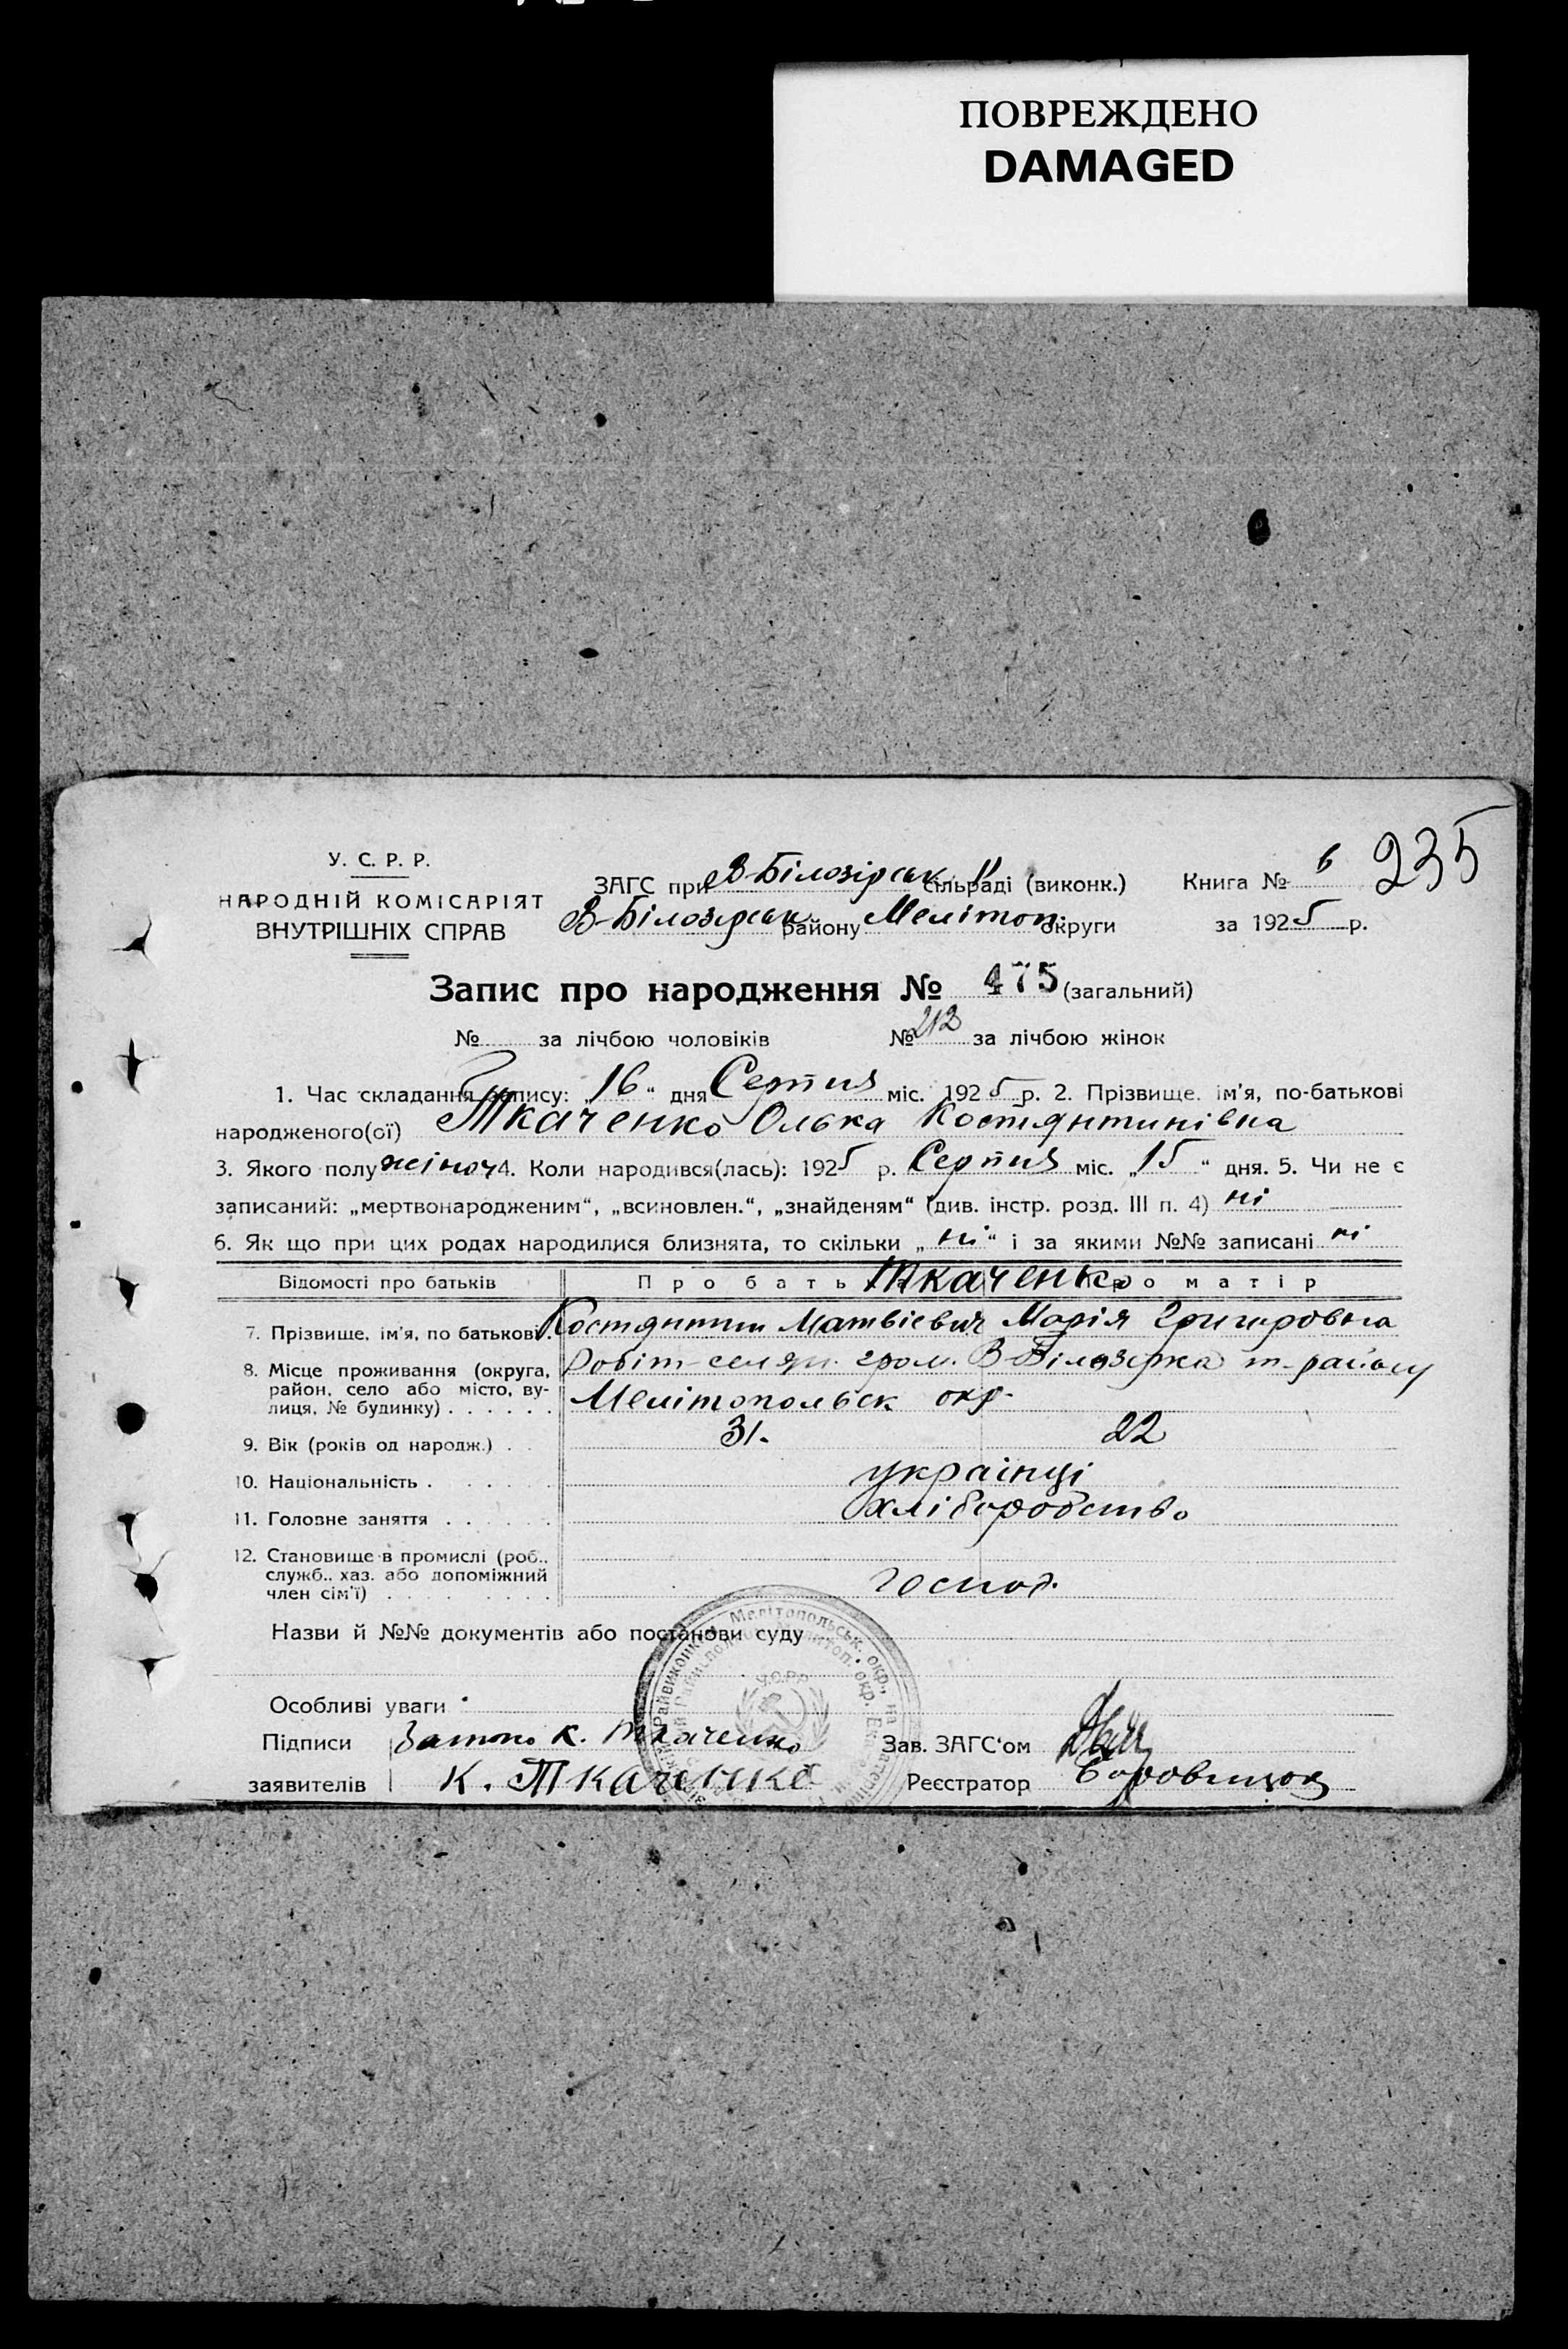 ПОВРЕЖДЕНО
DAMAGED
У. С. Р. Р.
НАРОДНІЙ КОМІСАРІЯТ
ВНУТРІШНІХ СПРАВ
ЗАГС при В-Білозірськ. II сільраді (виконк.)
В-Білозірськ району Мелітоп. округи
Книга № 6
235
за 1925 р.
Запис про народження № 475 (загальний)
№ за лічбою чоловіків № 212 за лічбою жінок
1. Час складання запису: „16“ дня Серпня міс. 1925 р. 2. Прізвище, ім'я, по-батькові
народженого(ої) Ткаченко Олька Костянтинівна
3. Якого полу жіноч 4. Коли народився(лась): 1925 р. Серпня міс. „15“ дня. 5. Чи не є
записаний: „мертвонародженим“, „всиновлен.“, „знайденям“ (див. інстр. розд. III п. 4) ні
6. Як що при цих родах народилися близнята, то скільки „ні“ і за якими №№ записані ні
Відомості про батьків Про батька Ткаченко Про матір
7. Прізвище, ім'я, по батькові. Костянтин Матвієвич Марія Григоровна
8. Місце проживання (округа, район, село або місто, вулиця, № будинку) . . . . . .
Робіт-селян. гром. В-Білозірка т-району
Мелітопольськ окр.
9. Вік (років од народж.) . . 31. 22
10. Національність . . . . . . українці
11. Головне заняття . . . . . . хліборобство
12. Становище в промислі (роб., служб., хаз. або допоміжний член сім'ї) . . . . . . господ.
Назви й №№ документів або постанови суду
Мелітопольськ. окр., на
У.С.Р.Р.
Особливі уваги
Підписи К. Ткаченко Зав. ЗАГС'ом
заявителів К. Ткаченко Реєстратор